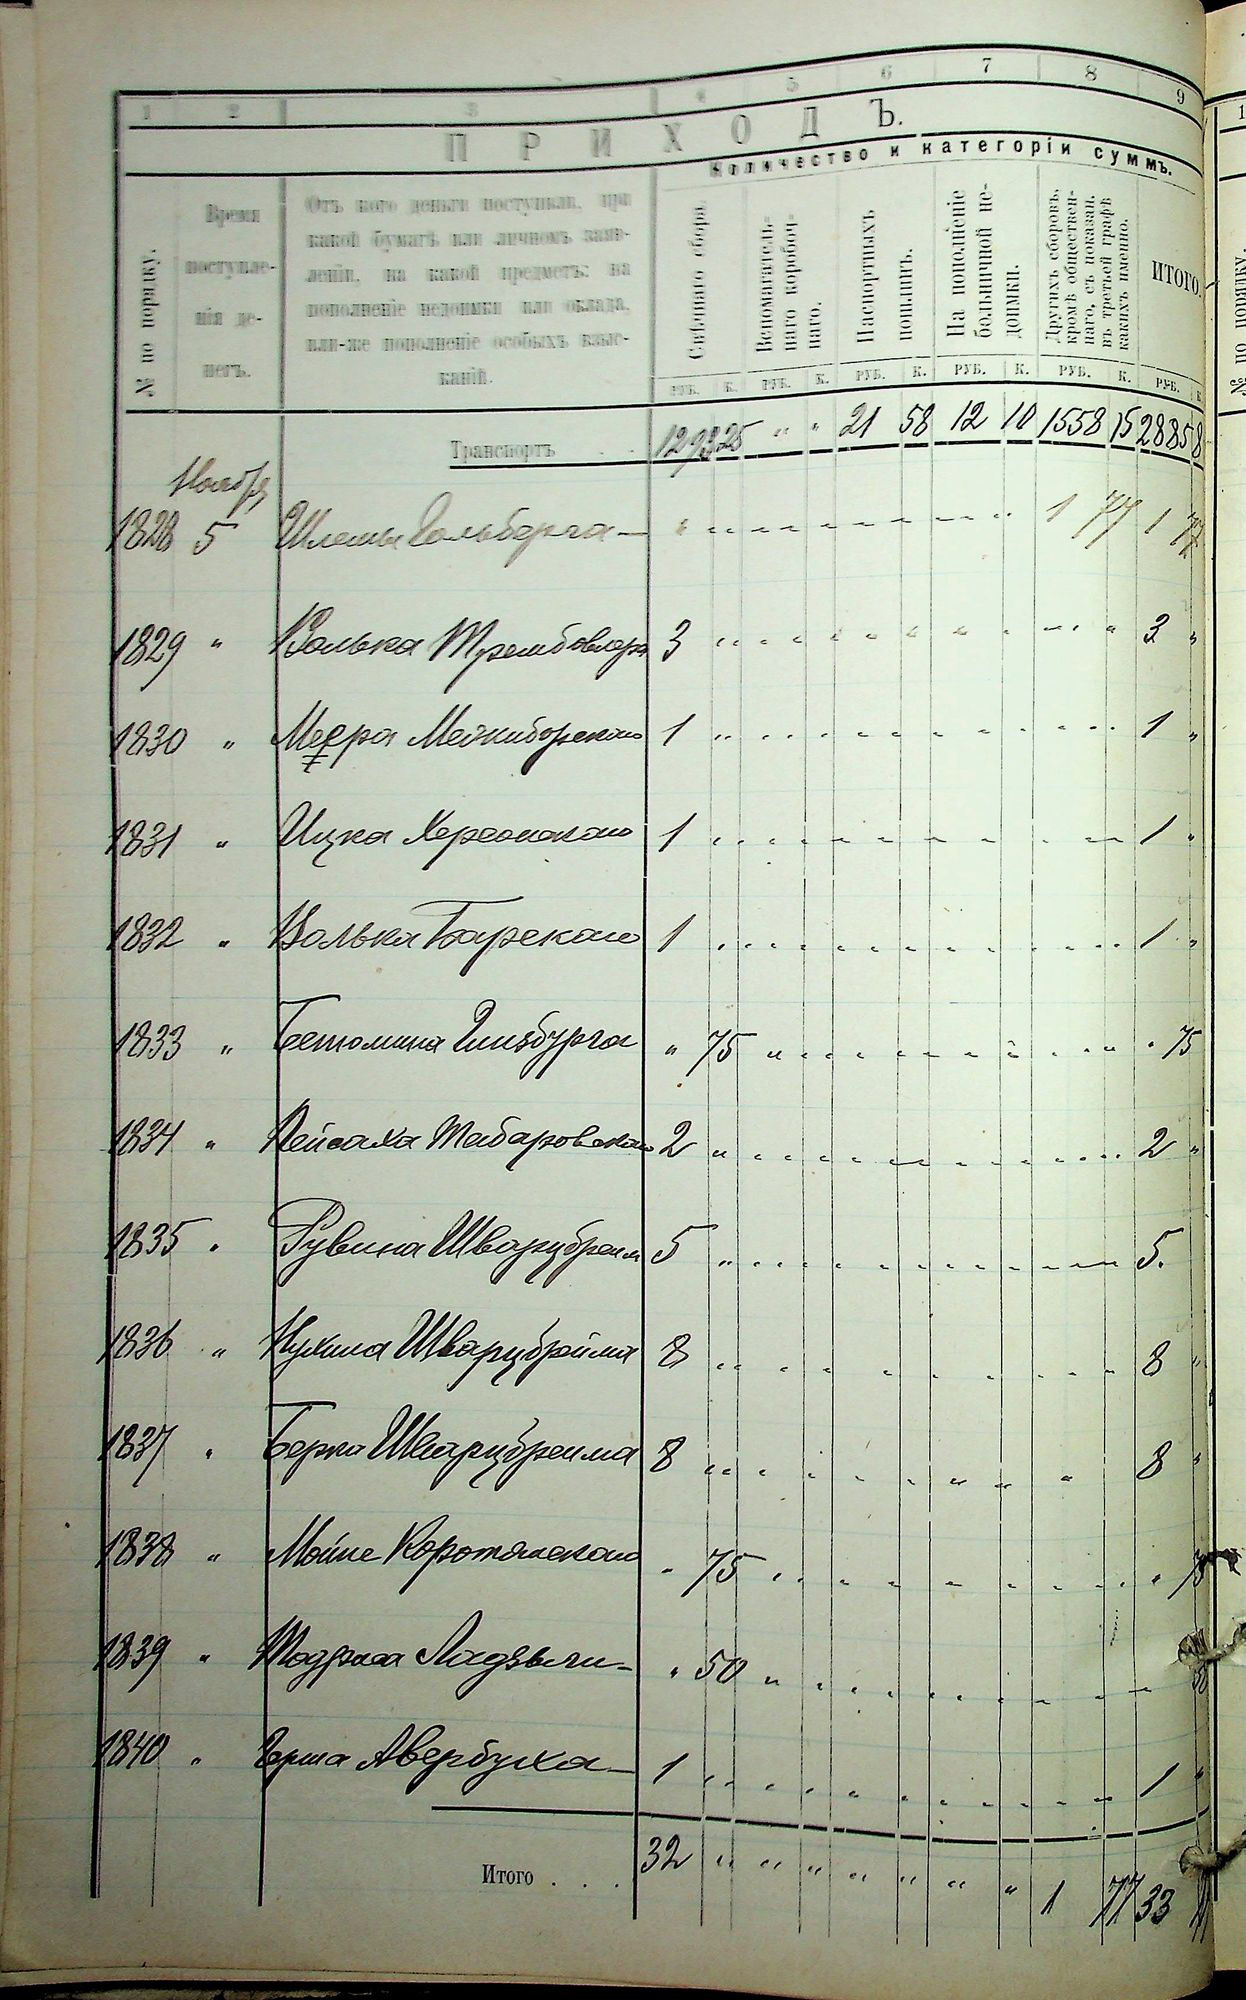 1 2 3 4 5 6 7 8 9
ПРИХОДЪ.
Количество и категоріи суммъ.
№ по порядку.
Время поступле-
нія де-
негъ.
Отъ кого деньги поступили, при
какой бумагѣ или личномъ заяв-
леніи, на какой предметъ: на
пополненіе недоимки или оклада,
или-же пополненіе особыхъ взыс-
каній.
Свѣчнаго сбора.
Вспомагатель-
наго коробоч-
наго.
Паспортныхъ
пошлинъ.
На пополненіе
больничной не-
доимки.
Другихъ сборовъ,
кромѣ обществен-
наго, съ показан.
въ третьей графѣ
какихъ именно.
ИТОГО.
РУБ. К. РУБ. К. РУБ. К. РУБ. К. РУБ. К. РУБ. К
Транспортъ . . 1293 25 " " 21 58 12 10 1558 15 2885 8
Ноября
1828 5 Шлемы Гольберга — " 1 77 1 77
1829 " Волька 3 3 "
1830 " Меера Межиборскаго 1 1 "
1831 " Ицка Херсонскаго 1 1 "
1832 " Волька Барскаго 1 1 "
1833 " Гинзбурга " 75 " 75
1834 " Пейсаха Табаровскаго 2 2 "
1835 " Рувина Шварцбрейм 5 5.
1836 " Нухима Шварцбрейма 8 8 "
1837 " Берка Шварцбрейма 8 8 "
1838 " Мойше Коротянскаго " 75 " 75
1839 " Ладыжи — " 50 50
1840 " Герша Авербуха — 1 1 "
Итого . . . 32 " " " " " " " 1 77 33 77